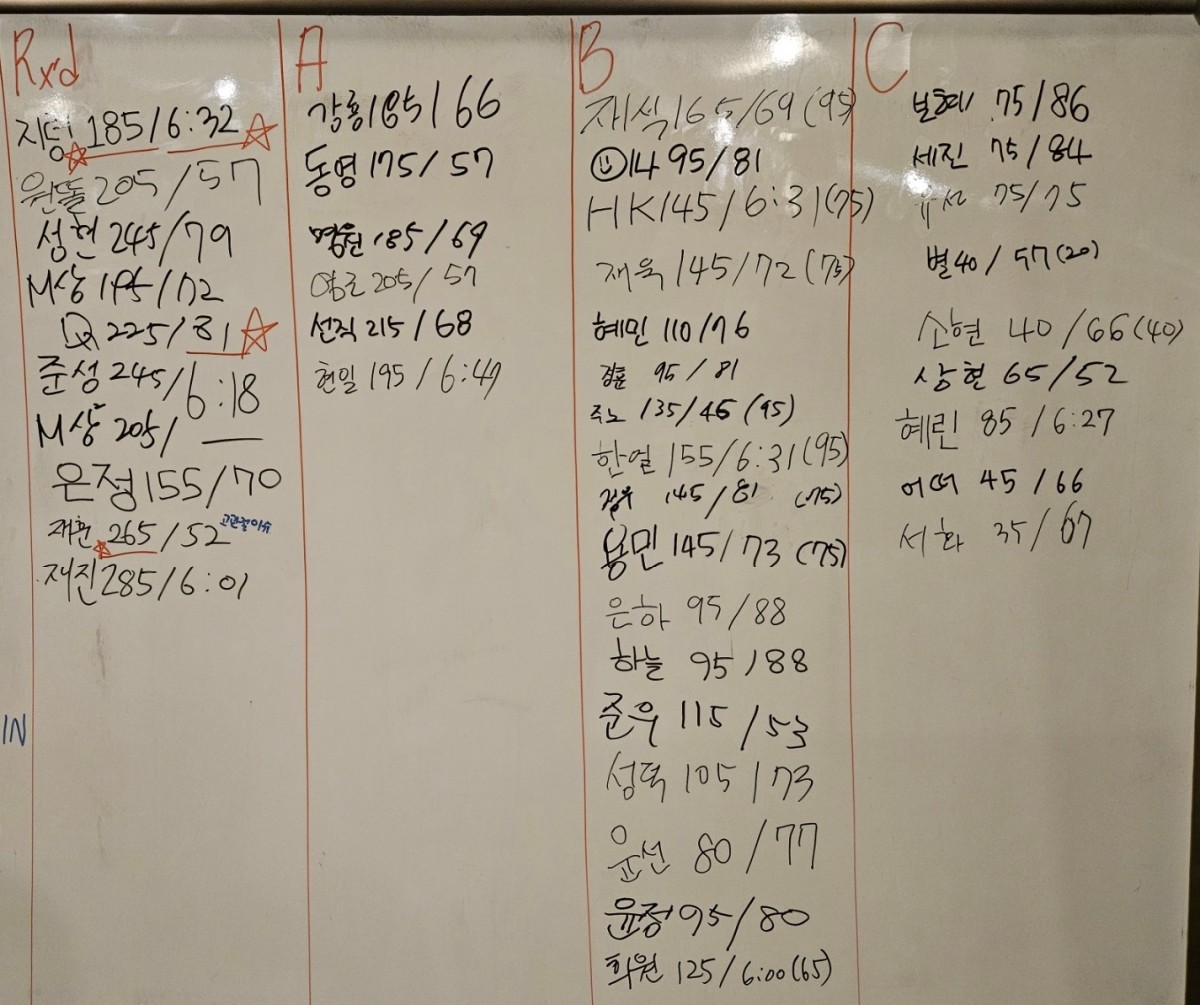 Rx'd
지텅 185/6:32
원돌 205/57
성현 245/79
M상 195/72
Q 225/81
준성 245/6:18
M상² 205/
은정 155/70
재환 265/52 고관절이슈
재진 285/6:01
IN
A
강룡 185/66
동영 175/57
명원 185/69
영근 205/57
선직 215/68
현일 195/6:47
B
재식 165/69 (95)
14 95/81
HK 145/6:31 (75)
재욱 145/72 (75)
혜민 110/76
경훈 95/81
주노 135/45 (95)
한얼 155/6:31 (95)
정우 145/81 (75)
용민 145/73 (75)
은하 95/88
하늘 95/88
준우 115/53
성덕 105/73
윤선 80/77
윤정 95/80
희원 125/6:00 (65)
C
보혜 75/86
세진 75/84
유선 75/75
별 40/57 (20)
소현 40/66 (40)
상현 65/52
혜린 85/6:27
어떠 45/66
서화 35/67